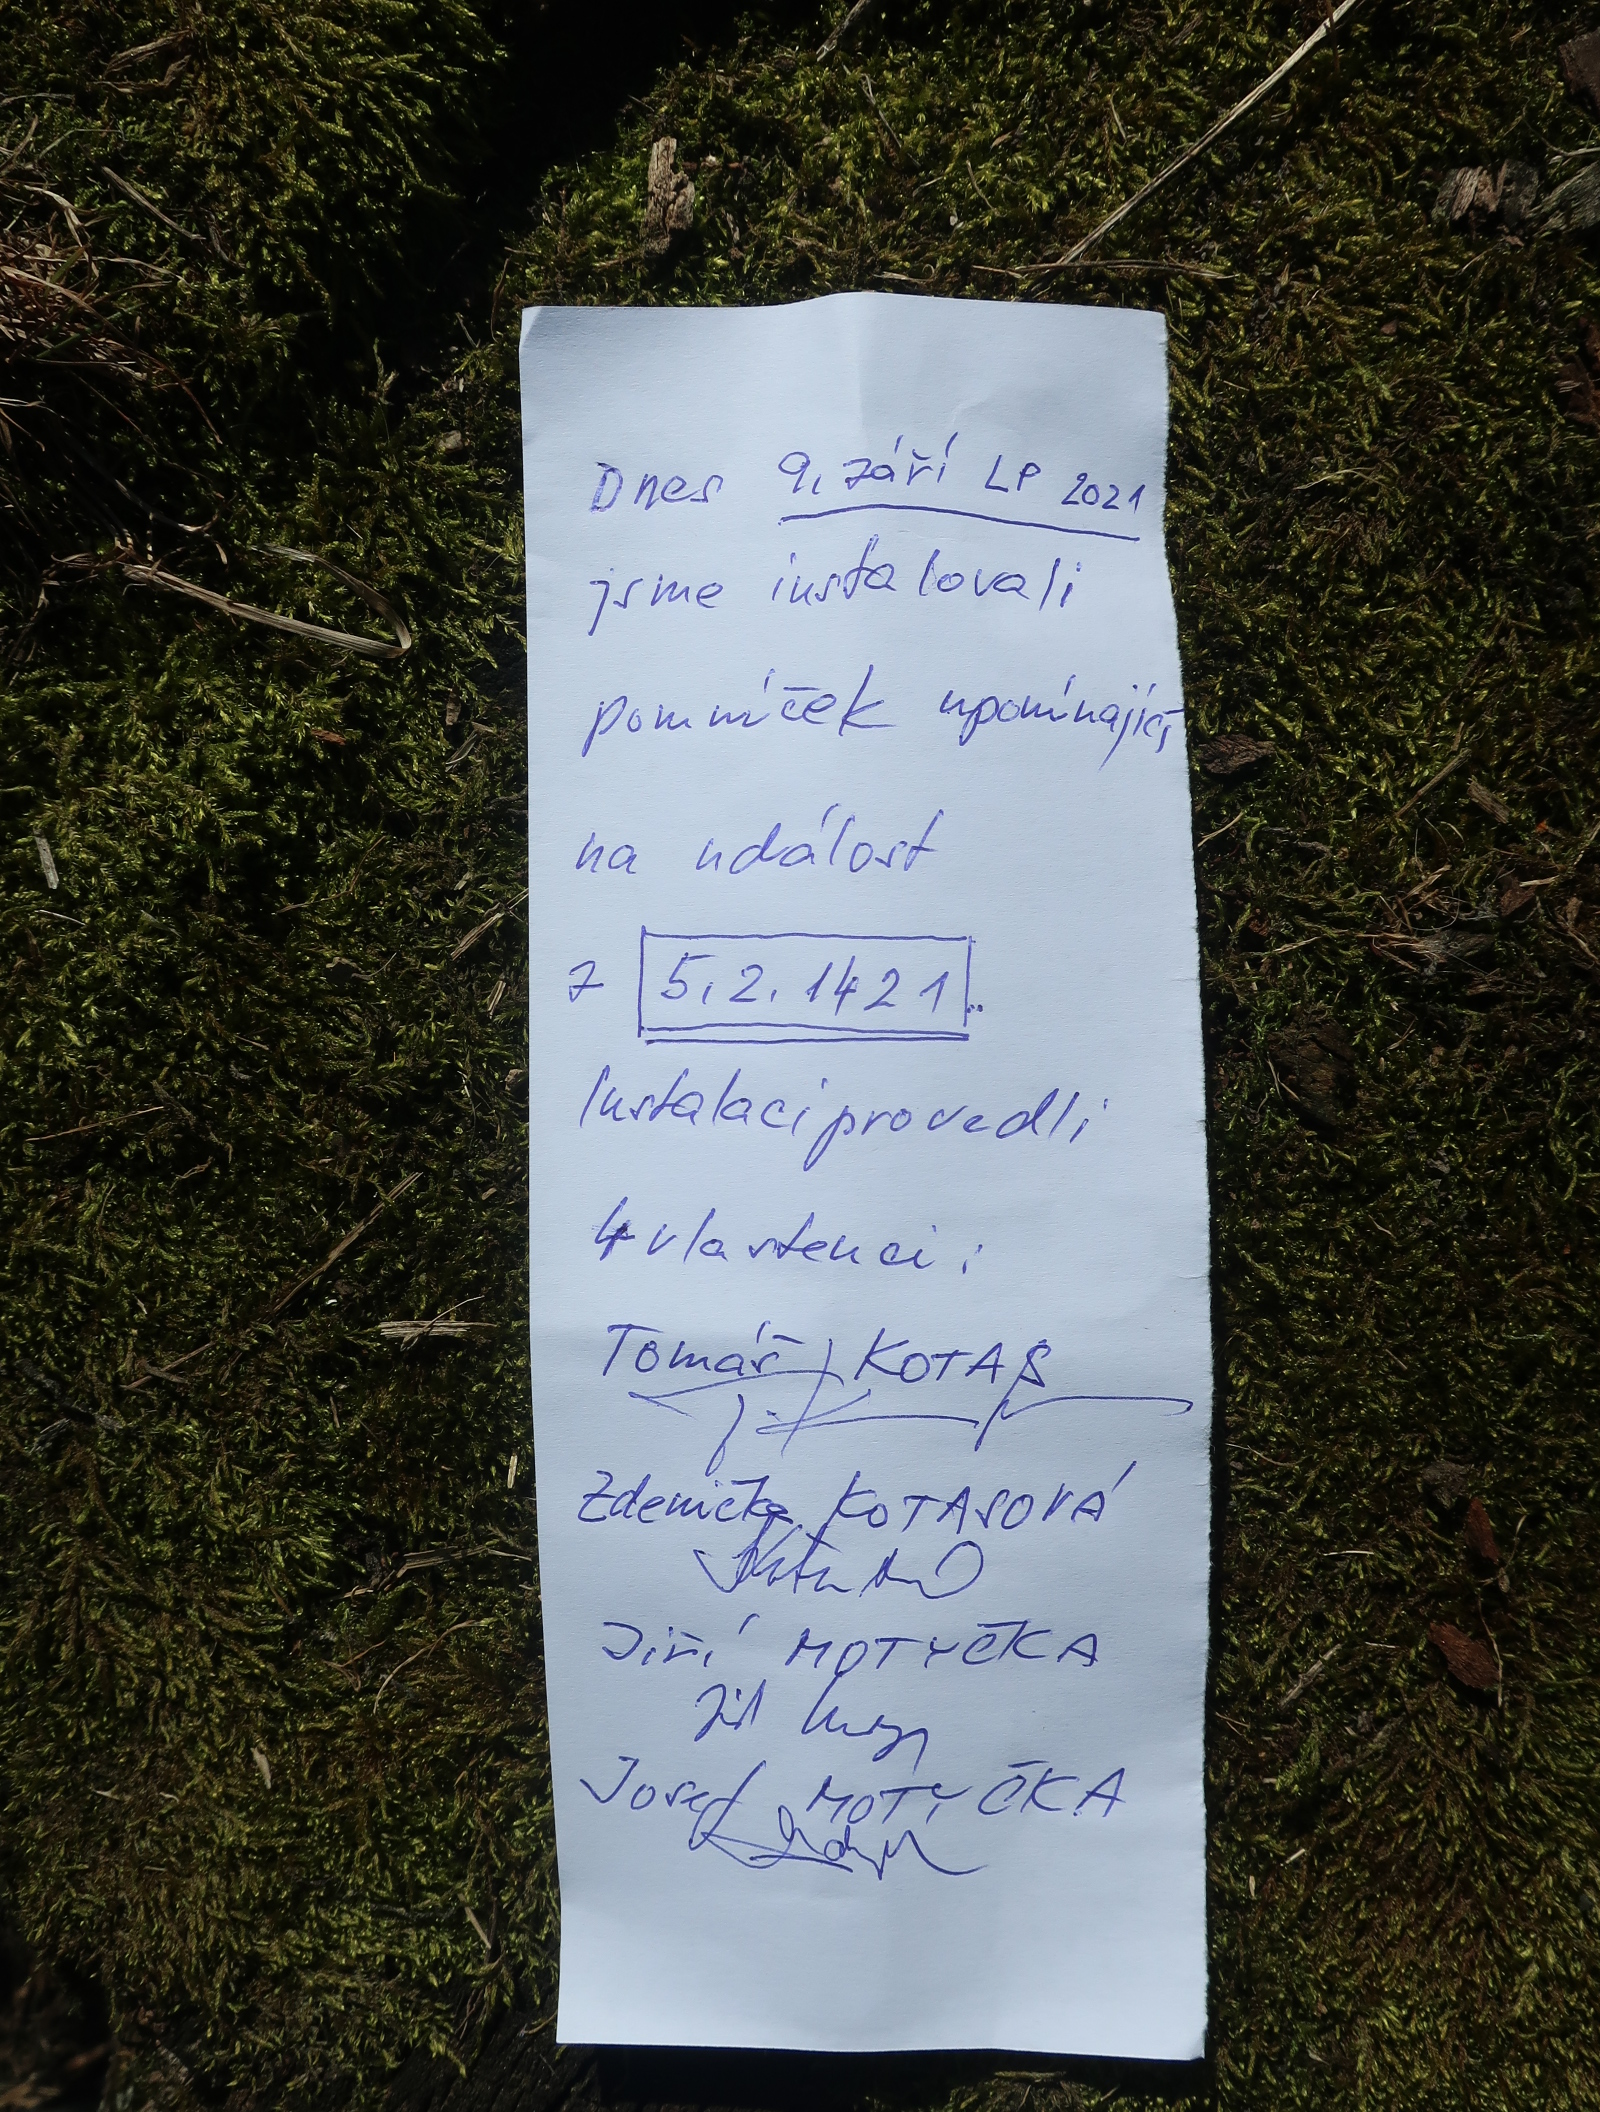 Dnes 9. září LP 2021
jsme instalovali
pomníček upomínající
na událost
z 5.2.1421..
Instalaci provedli
4 vlastenci:
Tomáš KOTAS
Zdenička KOTASOVÁ
Jiří MOTYČKA
Josef MOTYČKA